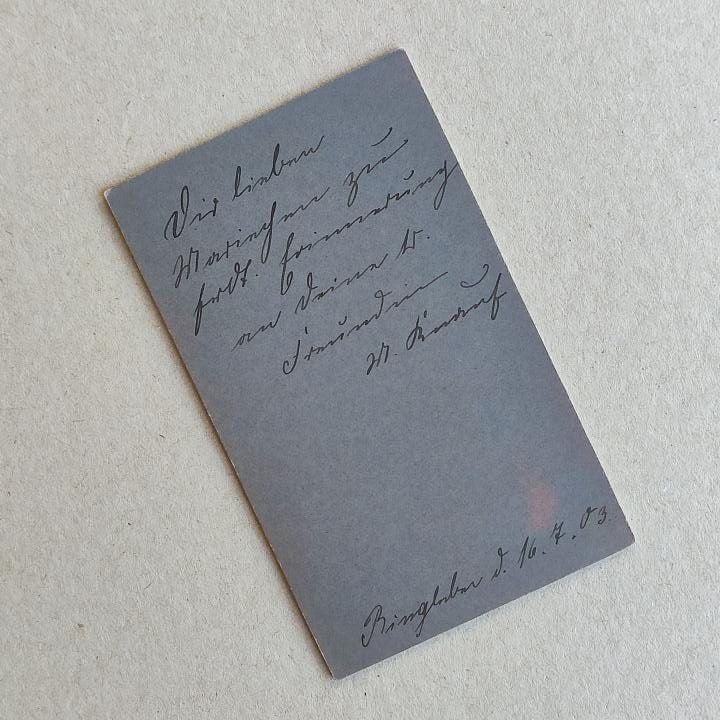 Dir lieben
Mariechen zu
frdl. Erinnerung
an Deine tr.
Freundin
M. Knauf
Ringleben d. 16. 7. 03.